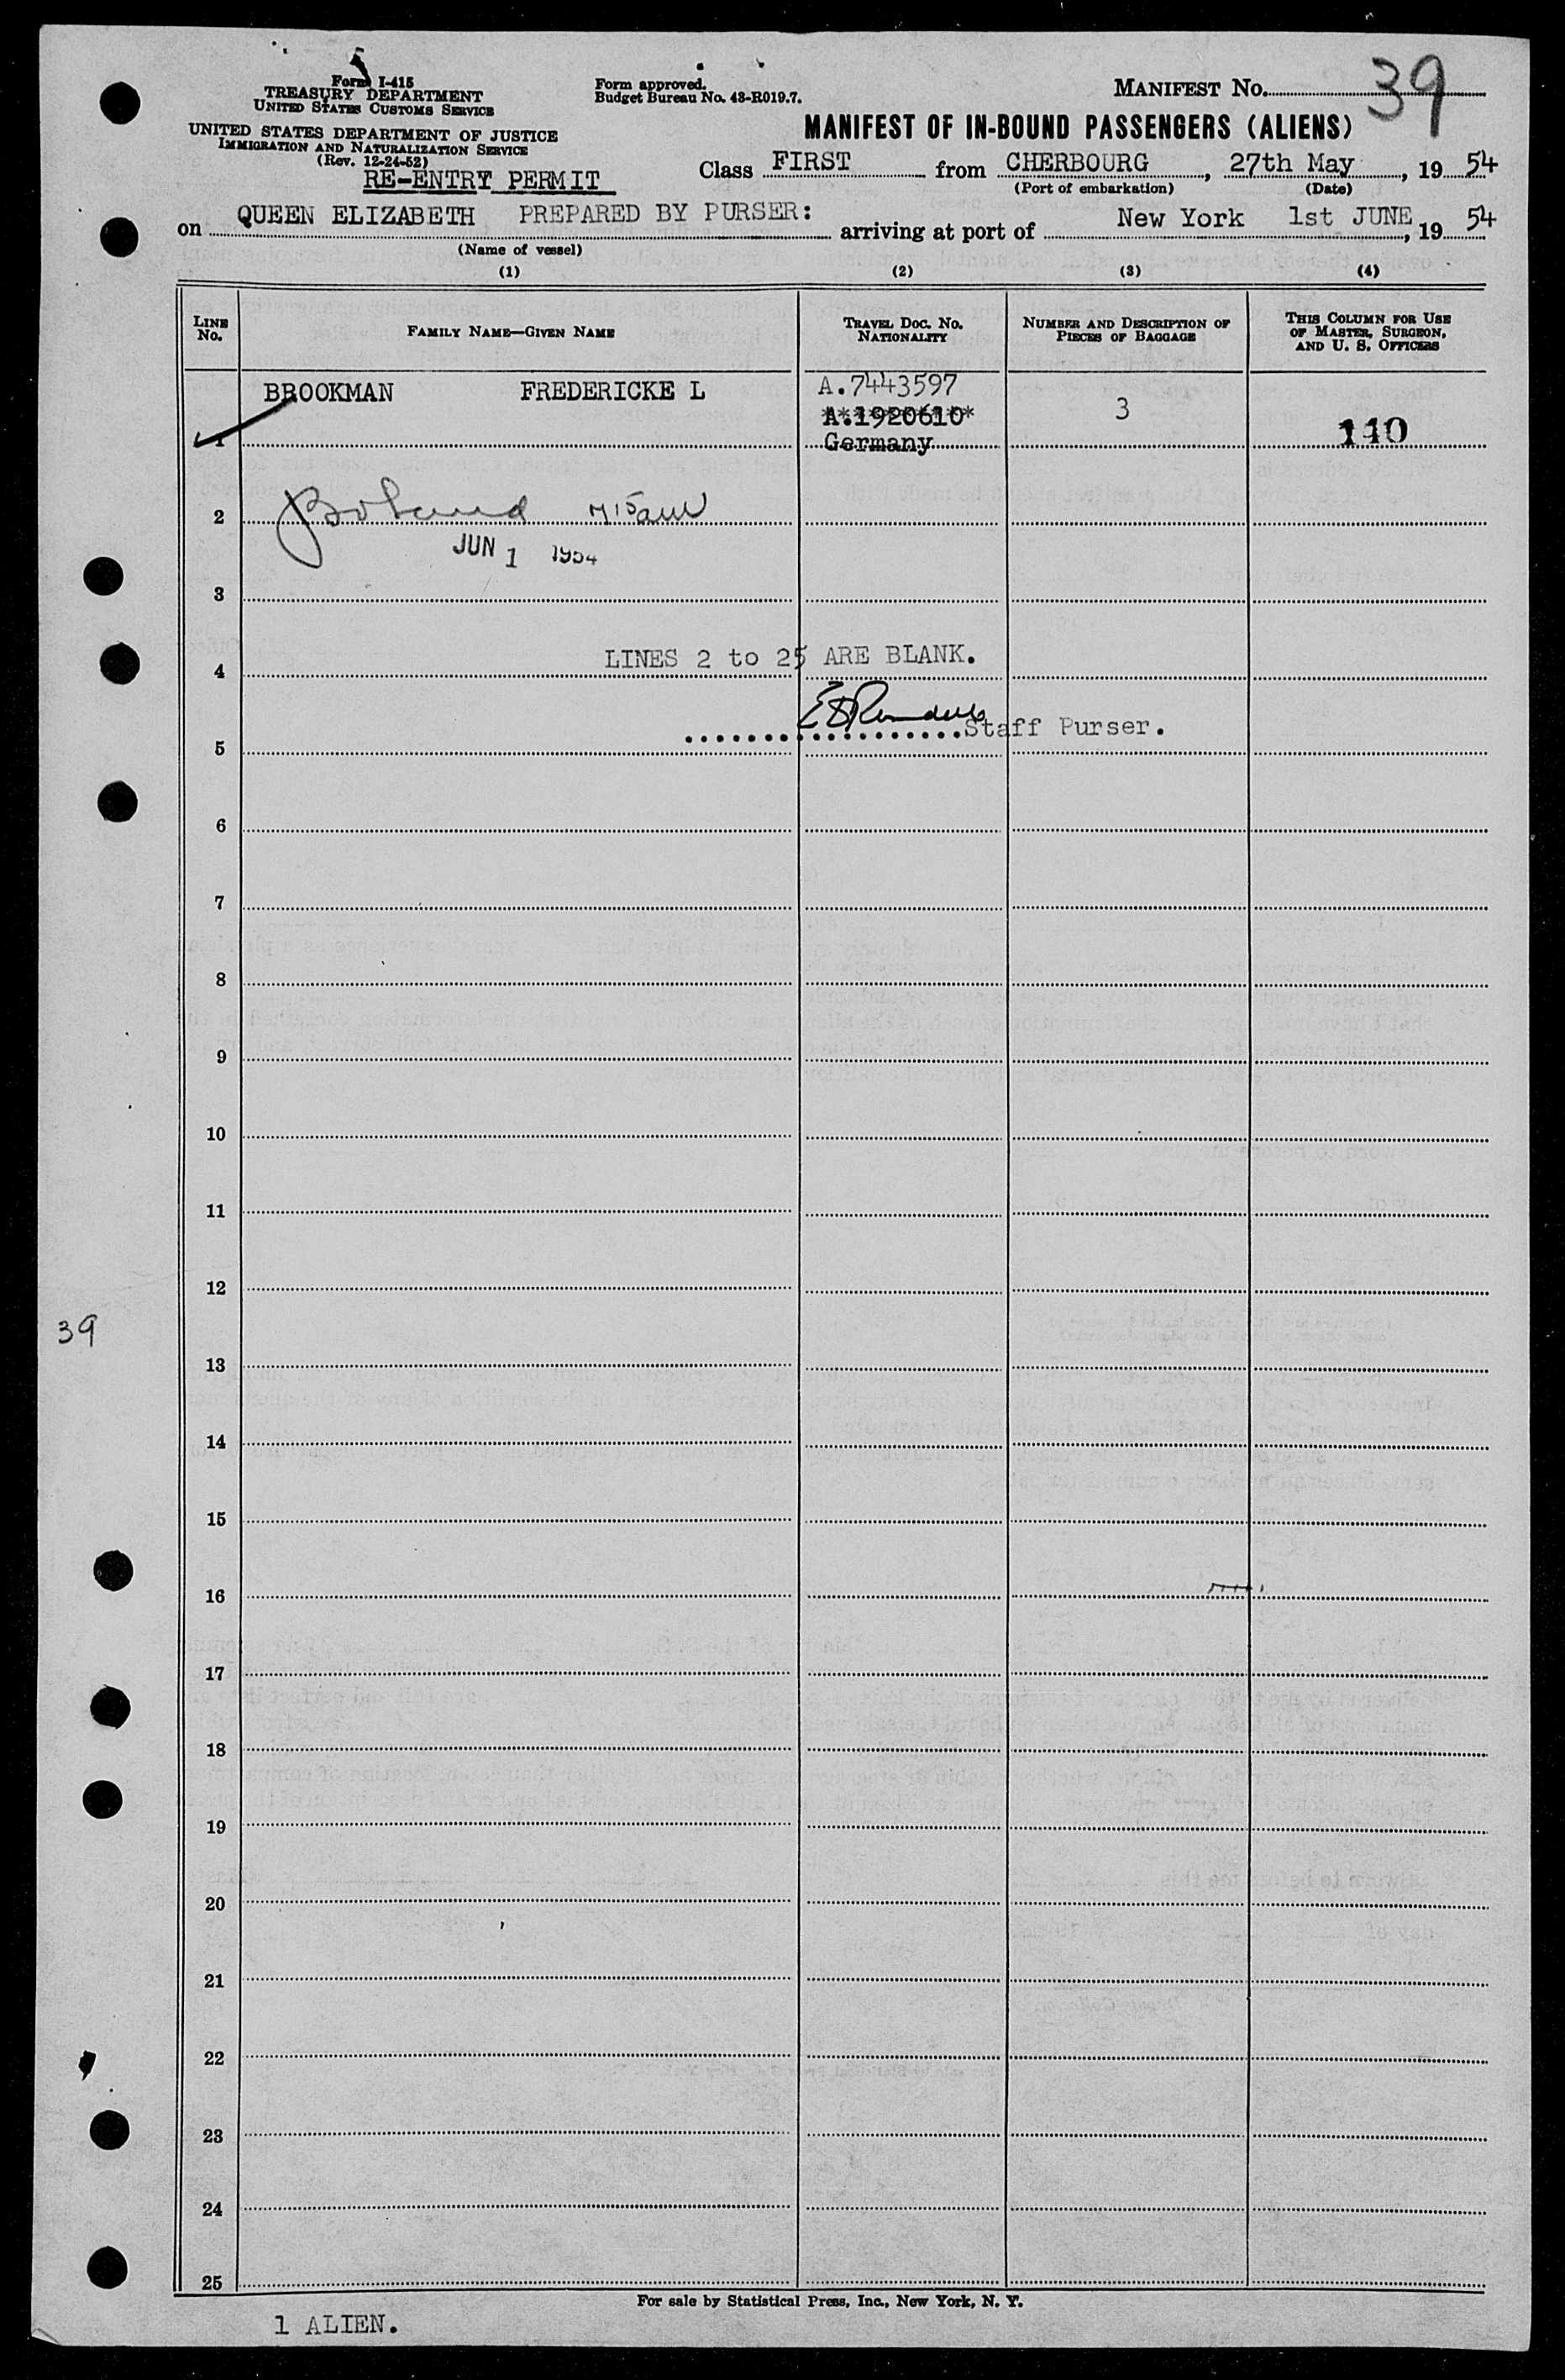 Form I-415
TREASURY DEPARTMENT
UNITED STATES CUSTOMS SERVICE
UNITED STATES DEPARTMENT OF JUSTICE
IMMIGRATION AND NATURALIZATION SERVICE
(Rev. 12-24-52)
RE-ENTRY PERMIT
Form approved.
Budget Bureau No. 43-R019.7.
MANIFEST NO. 39
MANIFEST OF IN-BOUND PASSENGERS (ALIENS)
Class FIRST from CHERBOURG, 27th May, 1954
(Port of embarkation) (Date)
on QUEEN ELIZABETH PREPARED BY PURSER: arriving at port of New York 1st JUNE, 1954
(Name of vessel)
(1) (2) (3) (4)
LINE NO.
FAMILY NAME—GIVEN NAME
TRAVEL DOC. NO. NATIONALITY
NUMBER AND DESCRIPTION OF PIECES OF BAGGAGE
THIS COLUMN FOR USE OF MASTER, SURGEON, AND U. S. OFFICERS
1 BROOKMAN FREDERICKE L A.7443597 3 140
A.1920610*
Germany
2
JUN 1 1954
3
4 LINES 2 to 25 ARE BLANK.
5 Staff Purser.
6
7
8
9
10
11
12
39
13
14
15
16
17
18
19
20
21
22
23
24
25
For sale by Statistical Press, Inc., New York, N. Y.
1 ALIEN.